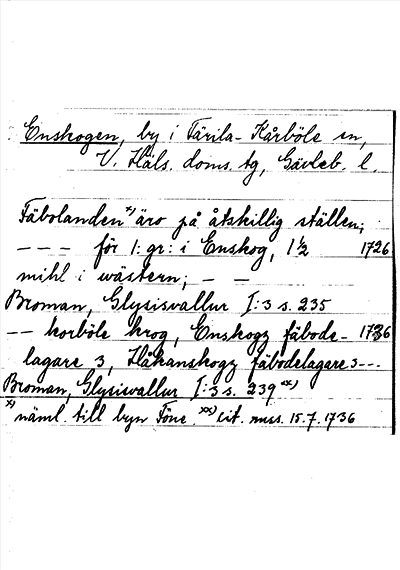 Enskogen, by i Färila-Kårböle sn,
V. Häls. doms. tg, Gävleb. l.
Fäbolanden x) äro på åtskillig ställen;
--- för 1: gr: i Enskog, 1 1/2 1726
mihl i wästern; - -
Broman, Glysisvallur I:3 s. 235
-- korböle krog, Enskogz fäbode- 1736
lagare 3, Håkanskogz fäbodelagare 3---.
Broman, Glysisvallur I:3 s. 239 xx)
x) näml. till byn Föne. xx) cit. mss. 15.7.1736